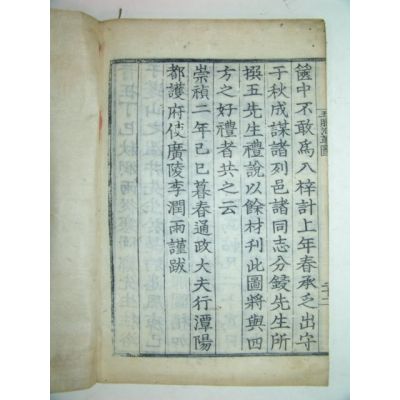 篋中不敢爲入梓計上年春承乏出守
于秋成謀諸列邑諸同志分鋟先生所
撰五先生禮說以餘材刊此圖將與四
方之好禮者共之云
崇禎二年己巳暮春通政大夫行潭陽
都護府使廣陵李潤雨謹跋
五服沿革圖